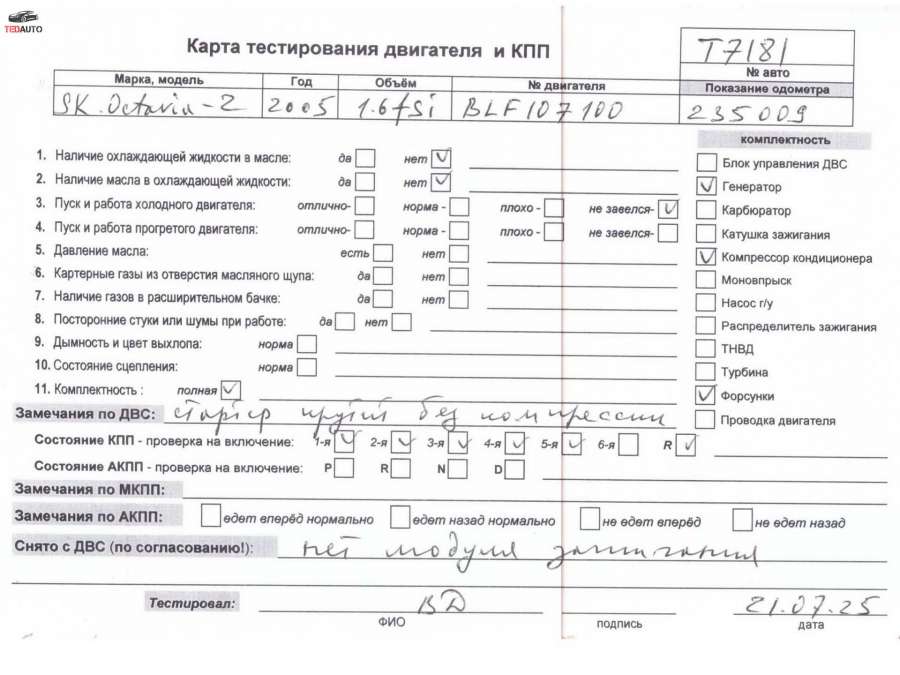 TEDAUTO
Карта тестирования двигателя и КПП
T7181
№ авто
Марка, модель Год Объём № двигателя Показание одометра
SK. Octavia-2 2005 1.6fSi BLF107100 235009
комплектность
1. Наличие охлаждающей жидкости в масле: да нет ✓
Блок управления ДВС
2. Наличие масла в охлаждающей жидкости: да нет ✓
✓ Генератор
3. Пуск и работа холодного двигателя: отлично- норма - плохо - не завелся- ✓
Карбюратор
4. Пуск и работа прогретого двигателя: отлично- норма - плохо - не завелся-
Катушка зажигания
5. Давление масла: есть нет
✓ Компрессор кондиционера
6. Картерные газы из отверстия масляного щупа: да нет
Моновпрыск
7. Наличие газов в расширительном бачке: да нет
Насос г/у
8. Посторонние стуки или шумы при работе: да нет
Распределитель зажигания
9. Дымность и цвет выхлопа: норма
ТНВД
10. Состояние сцепления: норма
Турбина
11. Комплектность : полная ✓
✓ Форсунки
Замечания по ДВС: стартер крутит без компрессии
Проводка двигателя
Состояние КПП - проверка на включение: 1-я ✓ 2-я ✓ 3-я ✓ 4-я ✓ 5-я ✓ 6-я R ✓
Состояние АКПП - проверка на включение: P R N D
Замечания по МКПП:
Замечания по АКПП: едет вперёд нормально едет назад нормально не едет вперёд не едет назад
Снято с ДВС (по согласованию!): нет модуля зажигания
Тестировал: ВД 21.07.25
ФИО подпись дата